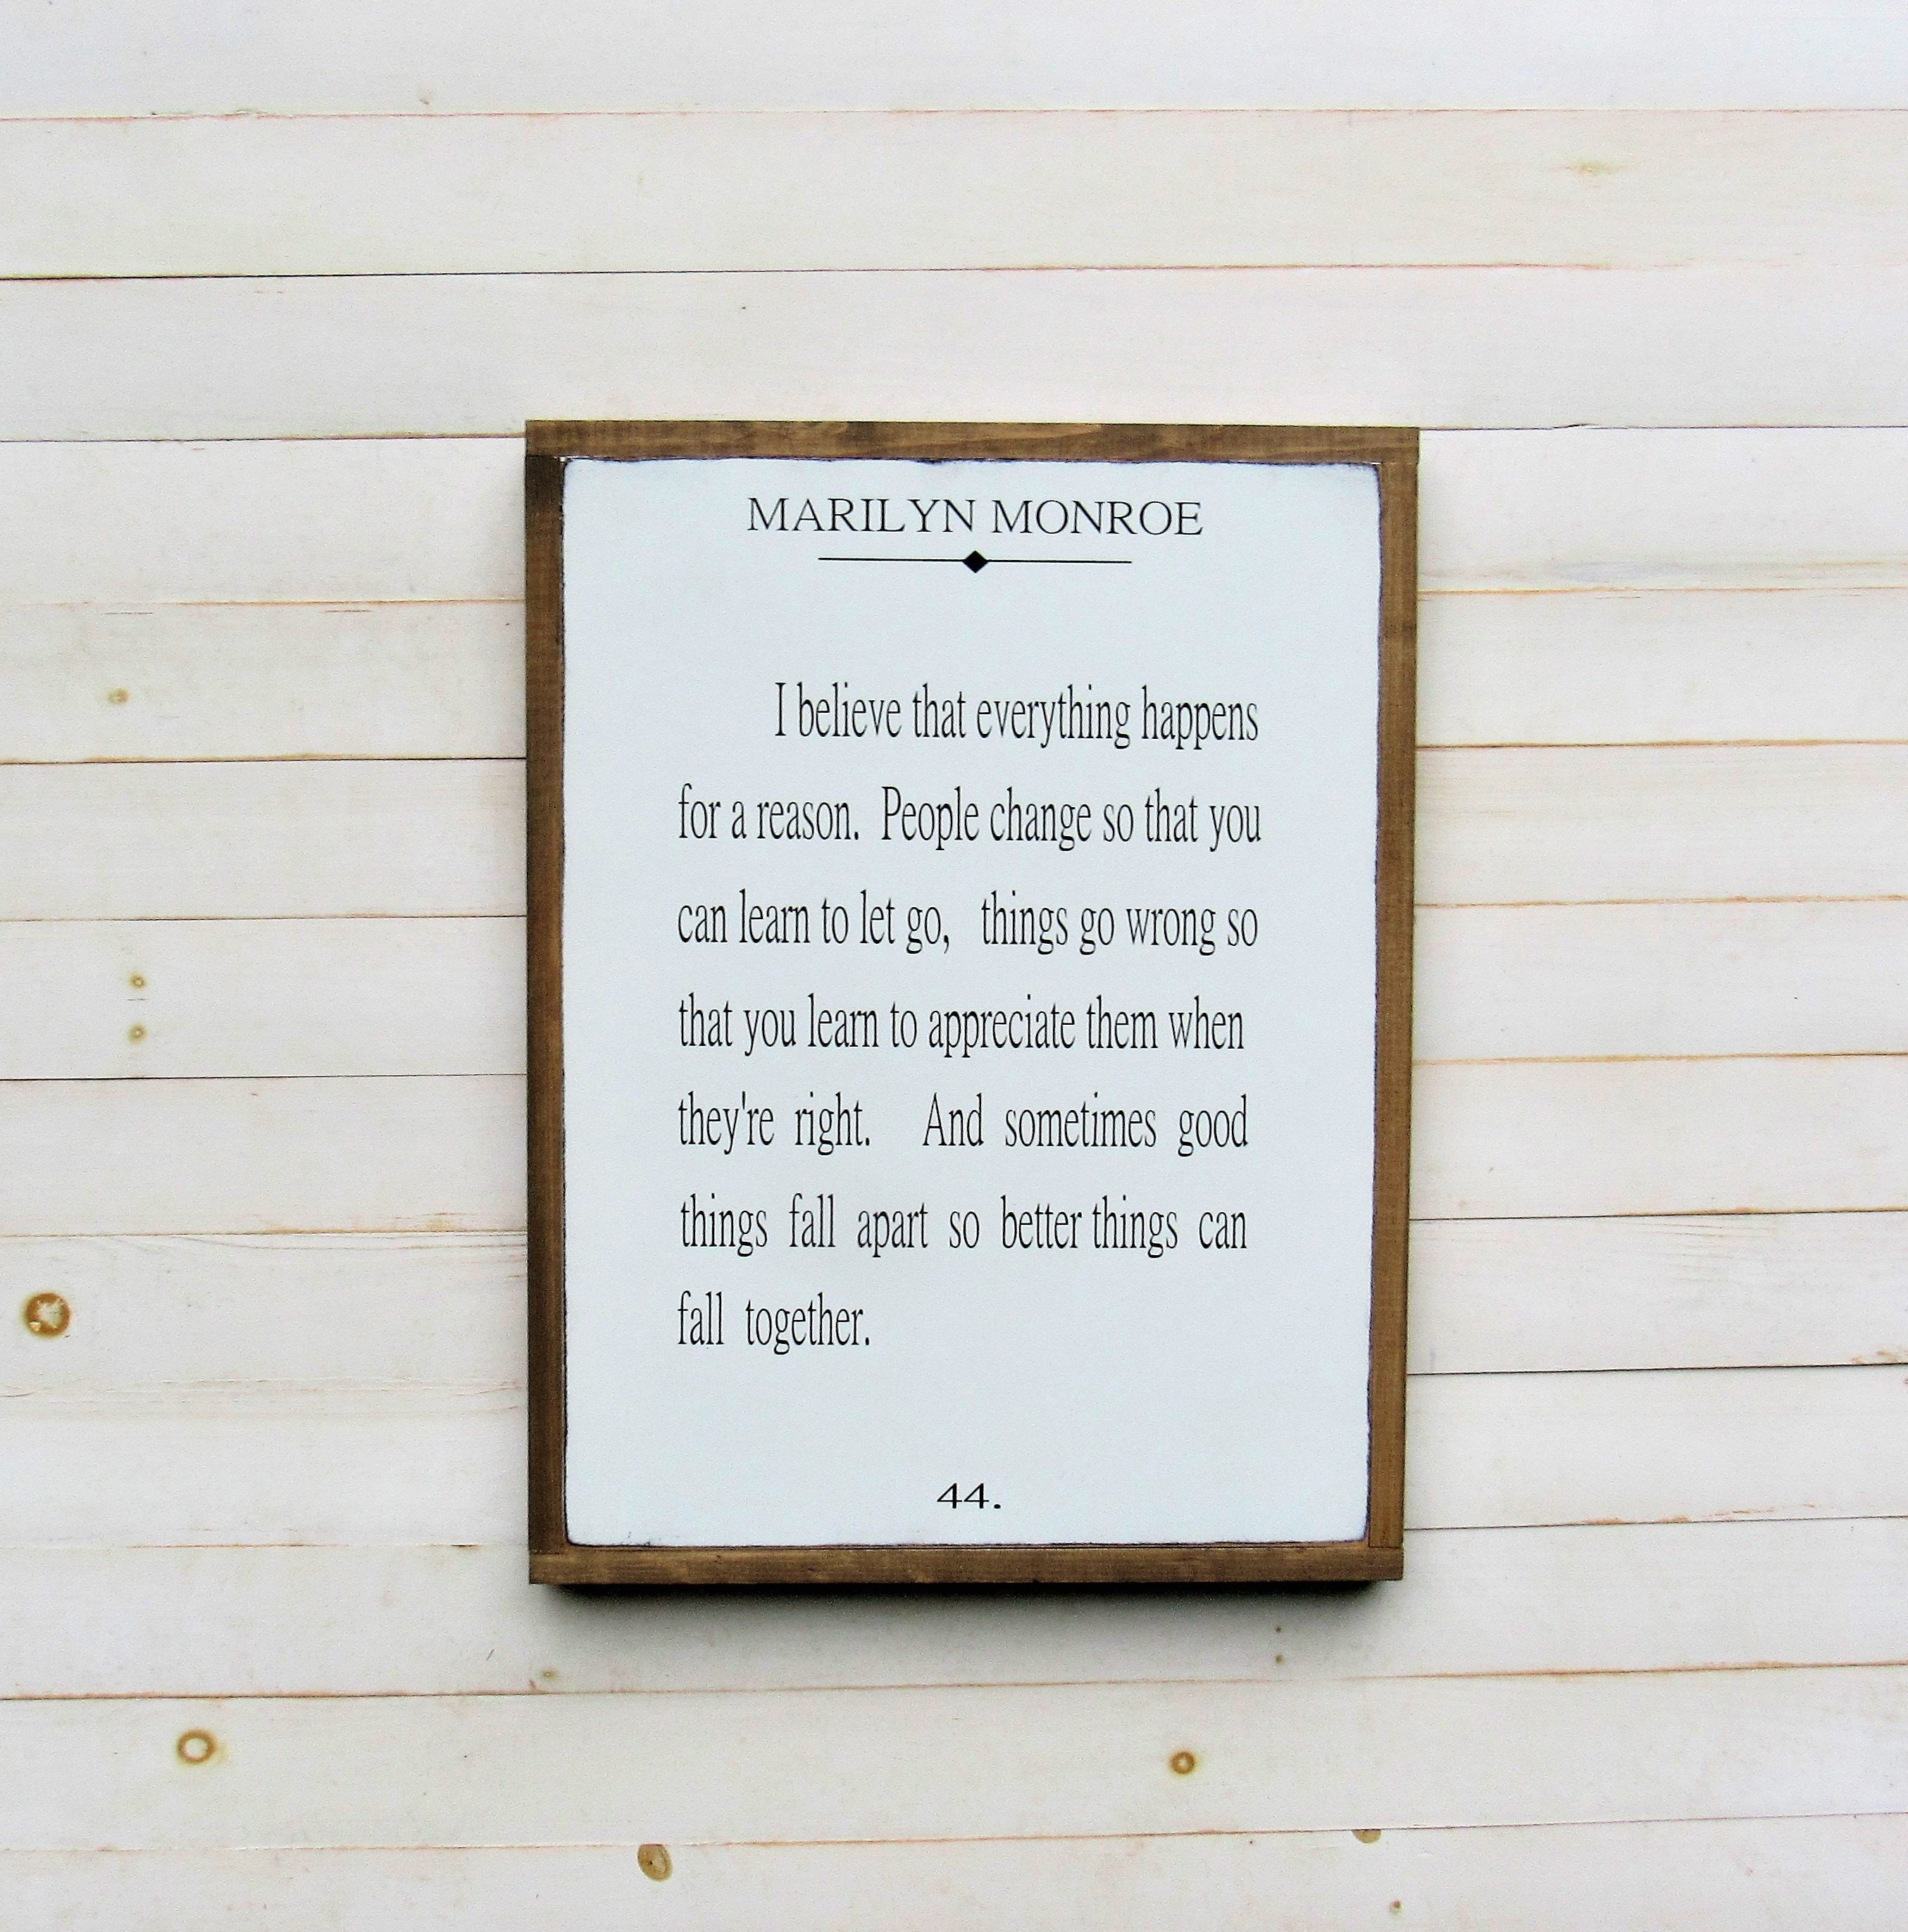 MARILYN MONROE
I believe that everything happens
for a reason. People change so that you
can learn to let go, things go wrong so
that you learn to appreciate them when
they're right. And sometimes good
things fall apart so better things can
fall together.
44.